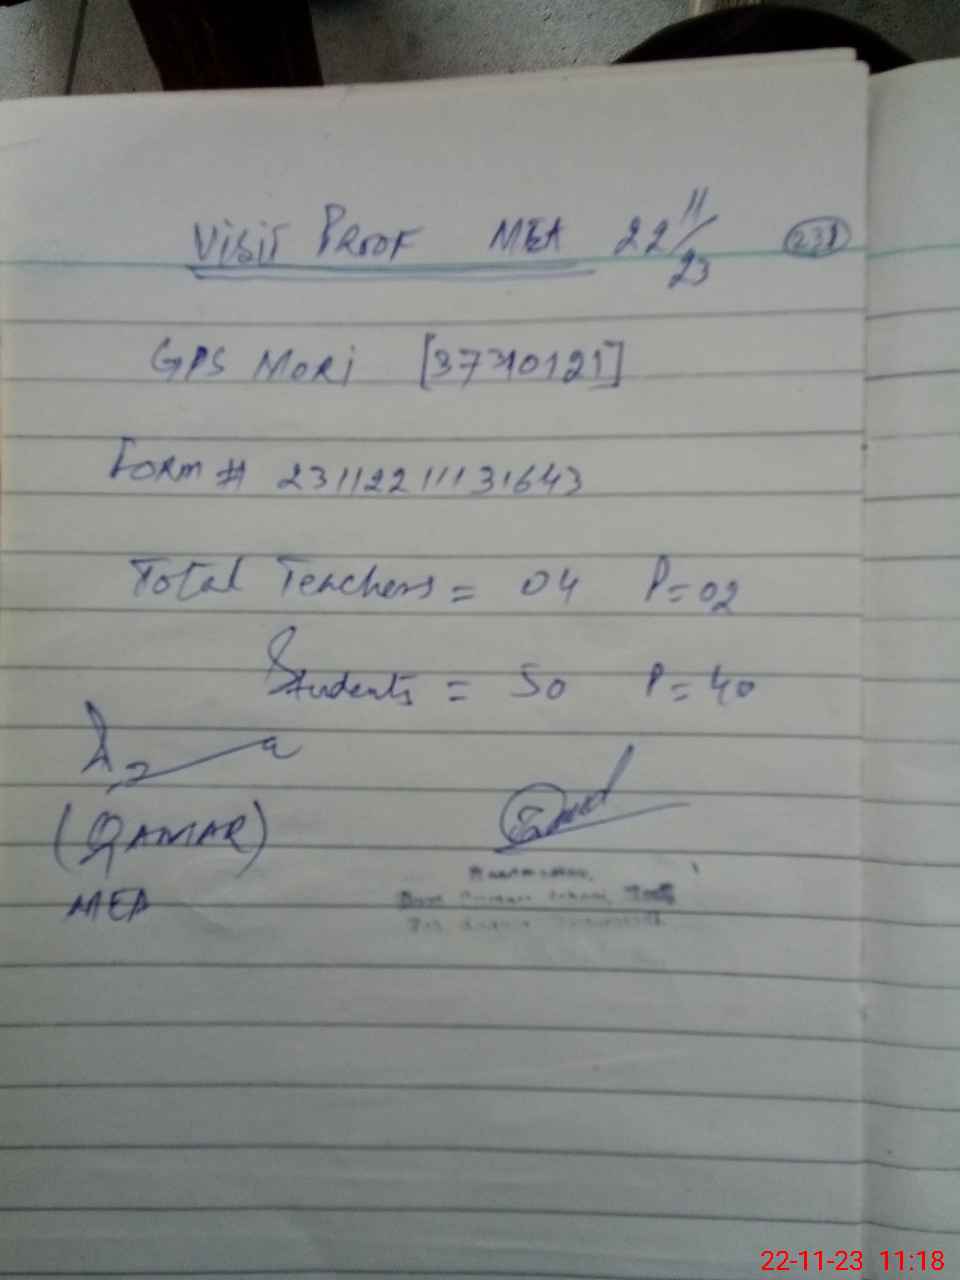 Visit Proof MEA 22/11/23 231
GPS Mori [37310121]
Form # 23112211131643
Total Teachers = 04 P=02
Students = 50 P=40
(QAMAR)
MEA
22-11-23 11:18